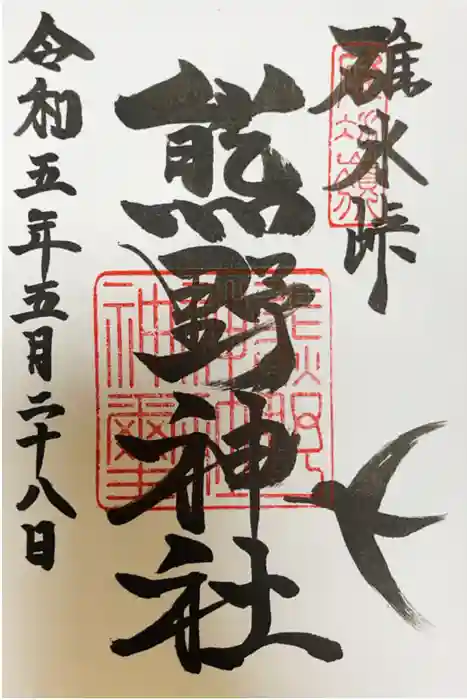 碓氷峠
熊野神社
令和五年五月二十八日